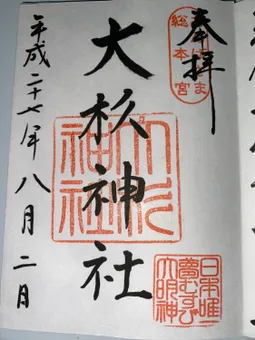 奉拝
総本宮
大杦神社
大杉神社
平成二十七年八月二日
日本唯一
夢むすび
大明神